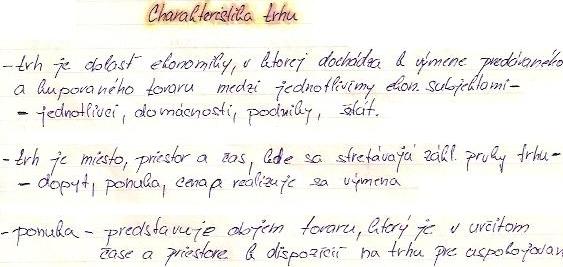 Charakteristika trhu
- trh je oblasť ekonomiky, v ktorej dochádza k výmene predávaného
a kupovaného tovaru medzi jednotlivými ekon. subjektami -
- jednotlivci, domácnosti, podniky, štát.
- trh je miesto, priestor a čas, kde sa stretávajú zákl. prvky trhu -
- dopyt, ponuka, cena a realizuje sa výmena
- ponuka - predstavuje objem tovaru, ktorý je v určitom
čase a priestore k dispozícií na trhu pre uspokojovan